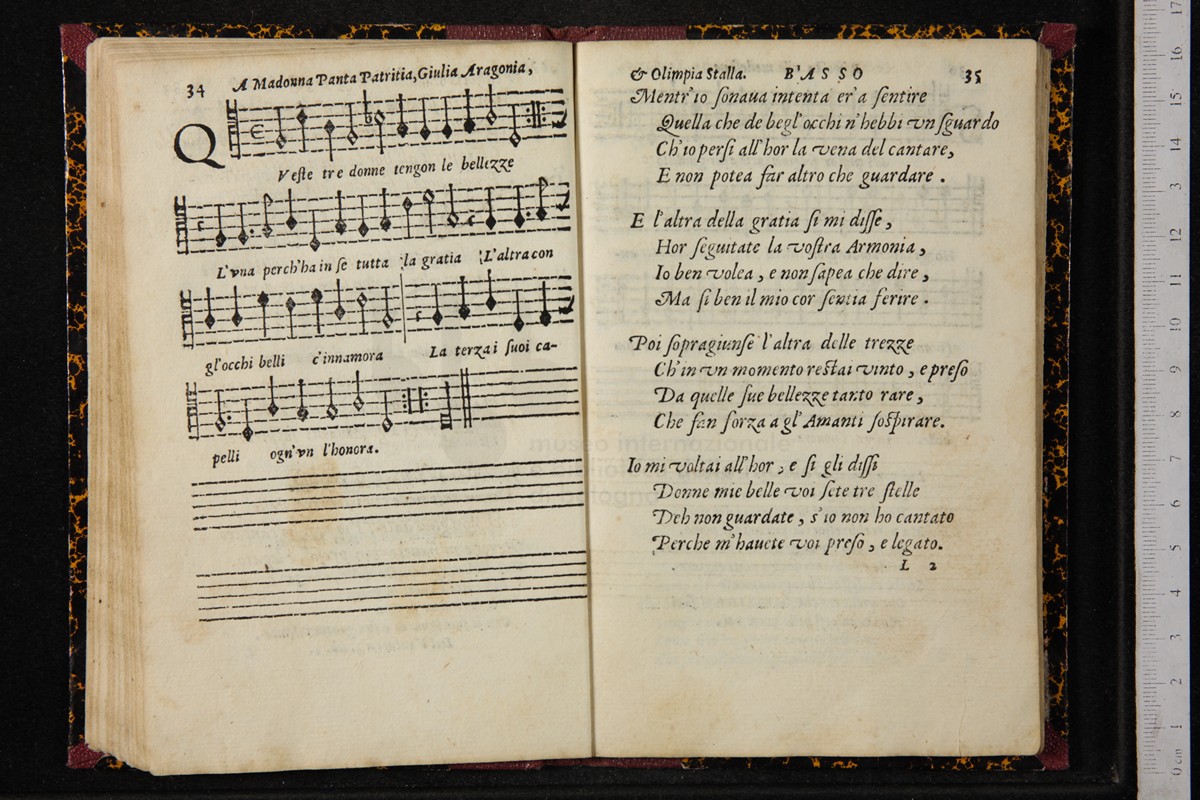 34 A Madonna Panta Patritia, Giulia Aragonia,
QVeste tre donne tengon le bellezze
L'vna perch'ha in se tutta la gratia L'altra con
gl'occhi belli c'innamora La terza i suoi ca-
pelli ogn'vn l'honora.
& Olimpia Stalla. BASSO 35
Mentr'io sonaua intenta er'a sentire
Quella che de begl'occhi n'hebbi vn sguardo
Ch'io persi all'hor la vena del cantare,
E non potea far altro che guardare.
E l'altra della gratia si mi disse,
Hor seguitate la vostra Armonia,
Io ben volea, e non sapea che dire,
Ma si ben il mio cor sentia ferire.
Poi sopragiunse l'altra delle trezze
Ch'in vn momento restai vinto, e preso
Da quelle sue bellezze tanto rare,
Che fan forza a gl'Amanti sospirare.
Io mi voltai all'hor, e si gli dissi
Donne mie belle voi sete tre stelle
Deh non guardate, s'io non ho cantato
Perche m'hauete voi preso, e legato.
L 2
museo internazionale
0 cm 1 2 3 4 5 6 7 8 9 10 11 12 13 14 15 16 17